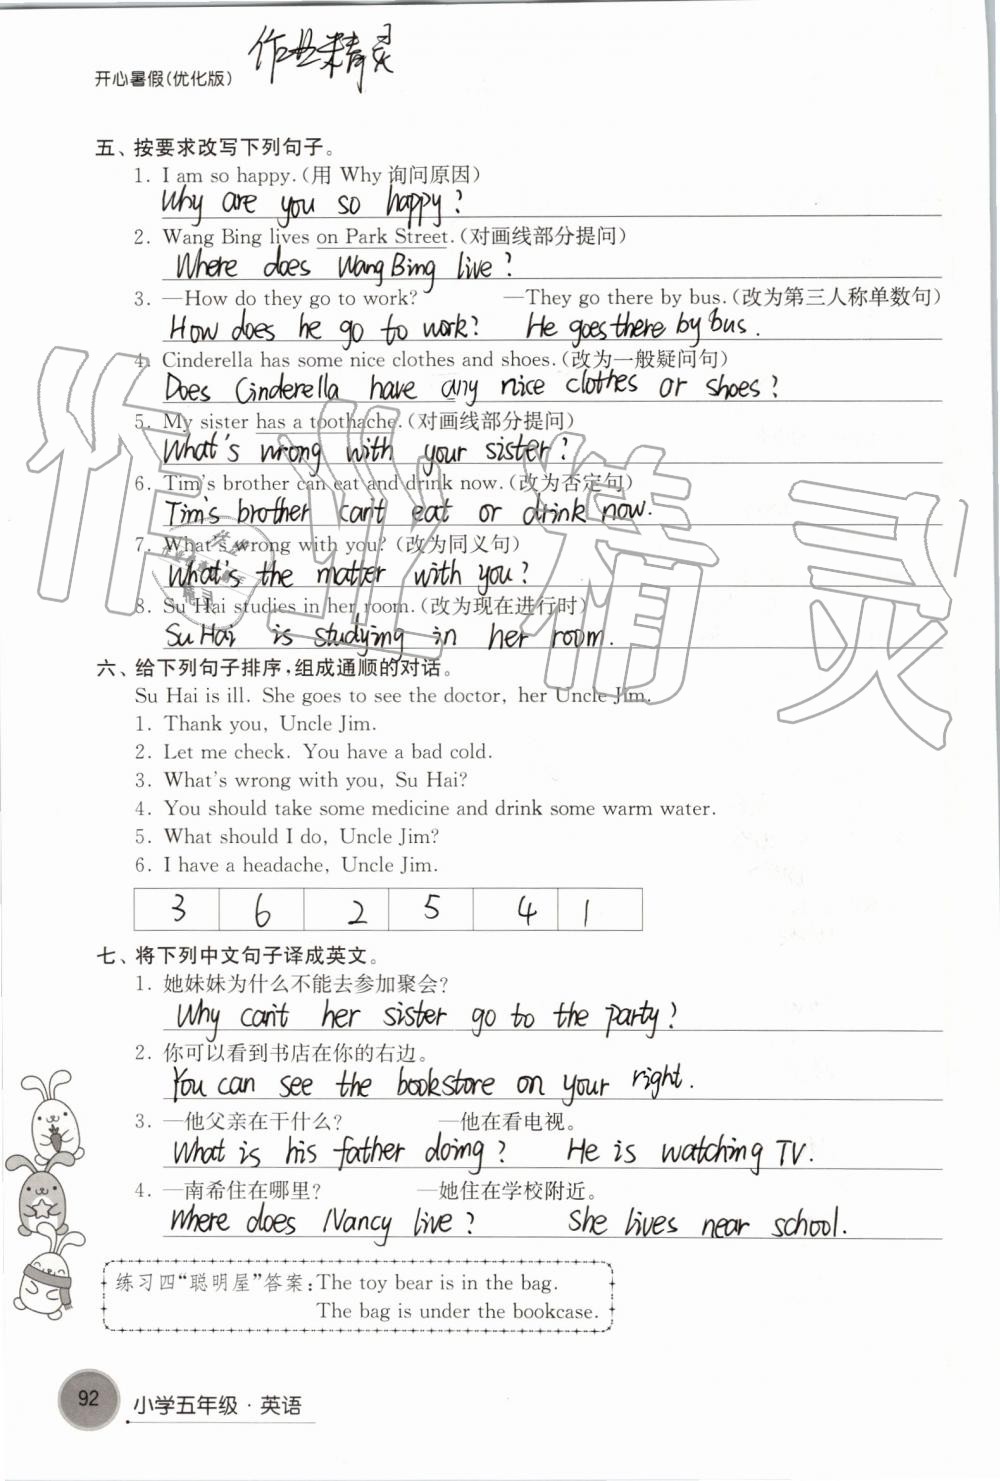 作业精灵
开心暑假(优化版)
五、按要求改写下列句子。
1. I am so happy.(用 Why 询问原因)
Why are you so happy?
2. Wang Bing lives on Park Street.(对画线部分提问)
Where does Wang Bing live?
3. —How do they go to work? —They go there by bus.(改为第三人称单数句)
How does he go to work? He goes there by bus.
4. Cinderella has some nice clothes and shoes.(改为一般疑问句)
Does Cinderella have any nice clothes or shoes?
5. My sister has a toothache.(对画线部分提问)
What's wrong with your sister?
6. Tim's brother can eat and drink now.(改为否定句)
Tim's brother can't eat or drink now.
7. What's wrong with you?(改为同义句)
What's the matter with you?
8. Su Hai studies in her room.(改为现在进行时)
Su Hai is studying in her room.
六、给下列句子排序,组成通顺的对话。
Su Hai is ill. She goes to see the doctor, her Uncle Jim.
1. Thank you, Uncle Jim.
2. Let me check. You have a bad cold.
3. What's wrong with you, Su Hai?
4. You should take some medicine and drink some warm water.
5. What should I do, Uncle Jim?
6. I have a headache, Uncle Jim.
3 6 2 5 4 1
七、将下列中文句子译成英文。
1. 她妹妹为什么不能去参加聚会?
Why can't her sister go to the party?
2. 你可以看到书店在你的右边。
You can see the bookstore on your right.
3. —他父亲在干什么? —他在看电视。
What is his father doing? He is watching TV.
4. —南希住在哪里? —她住在学校附近。
Where does Nancy live? She lives near school.
练习四“聪明屋”答案:The toy bear is in the bag.
The bag is under the bookcase.
92
小学五年级·英语
作业精灵